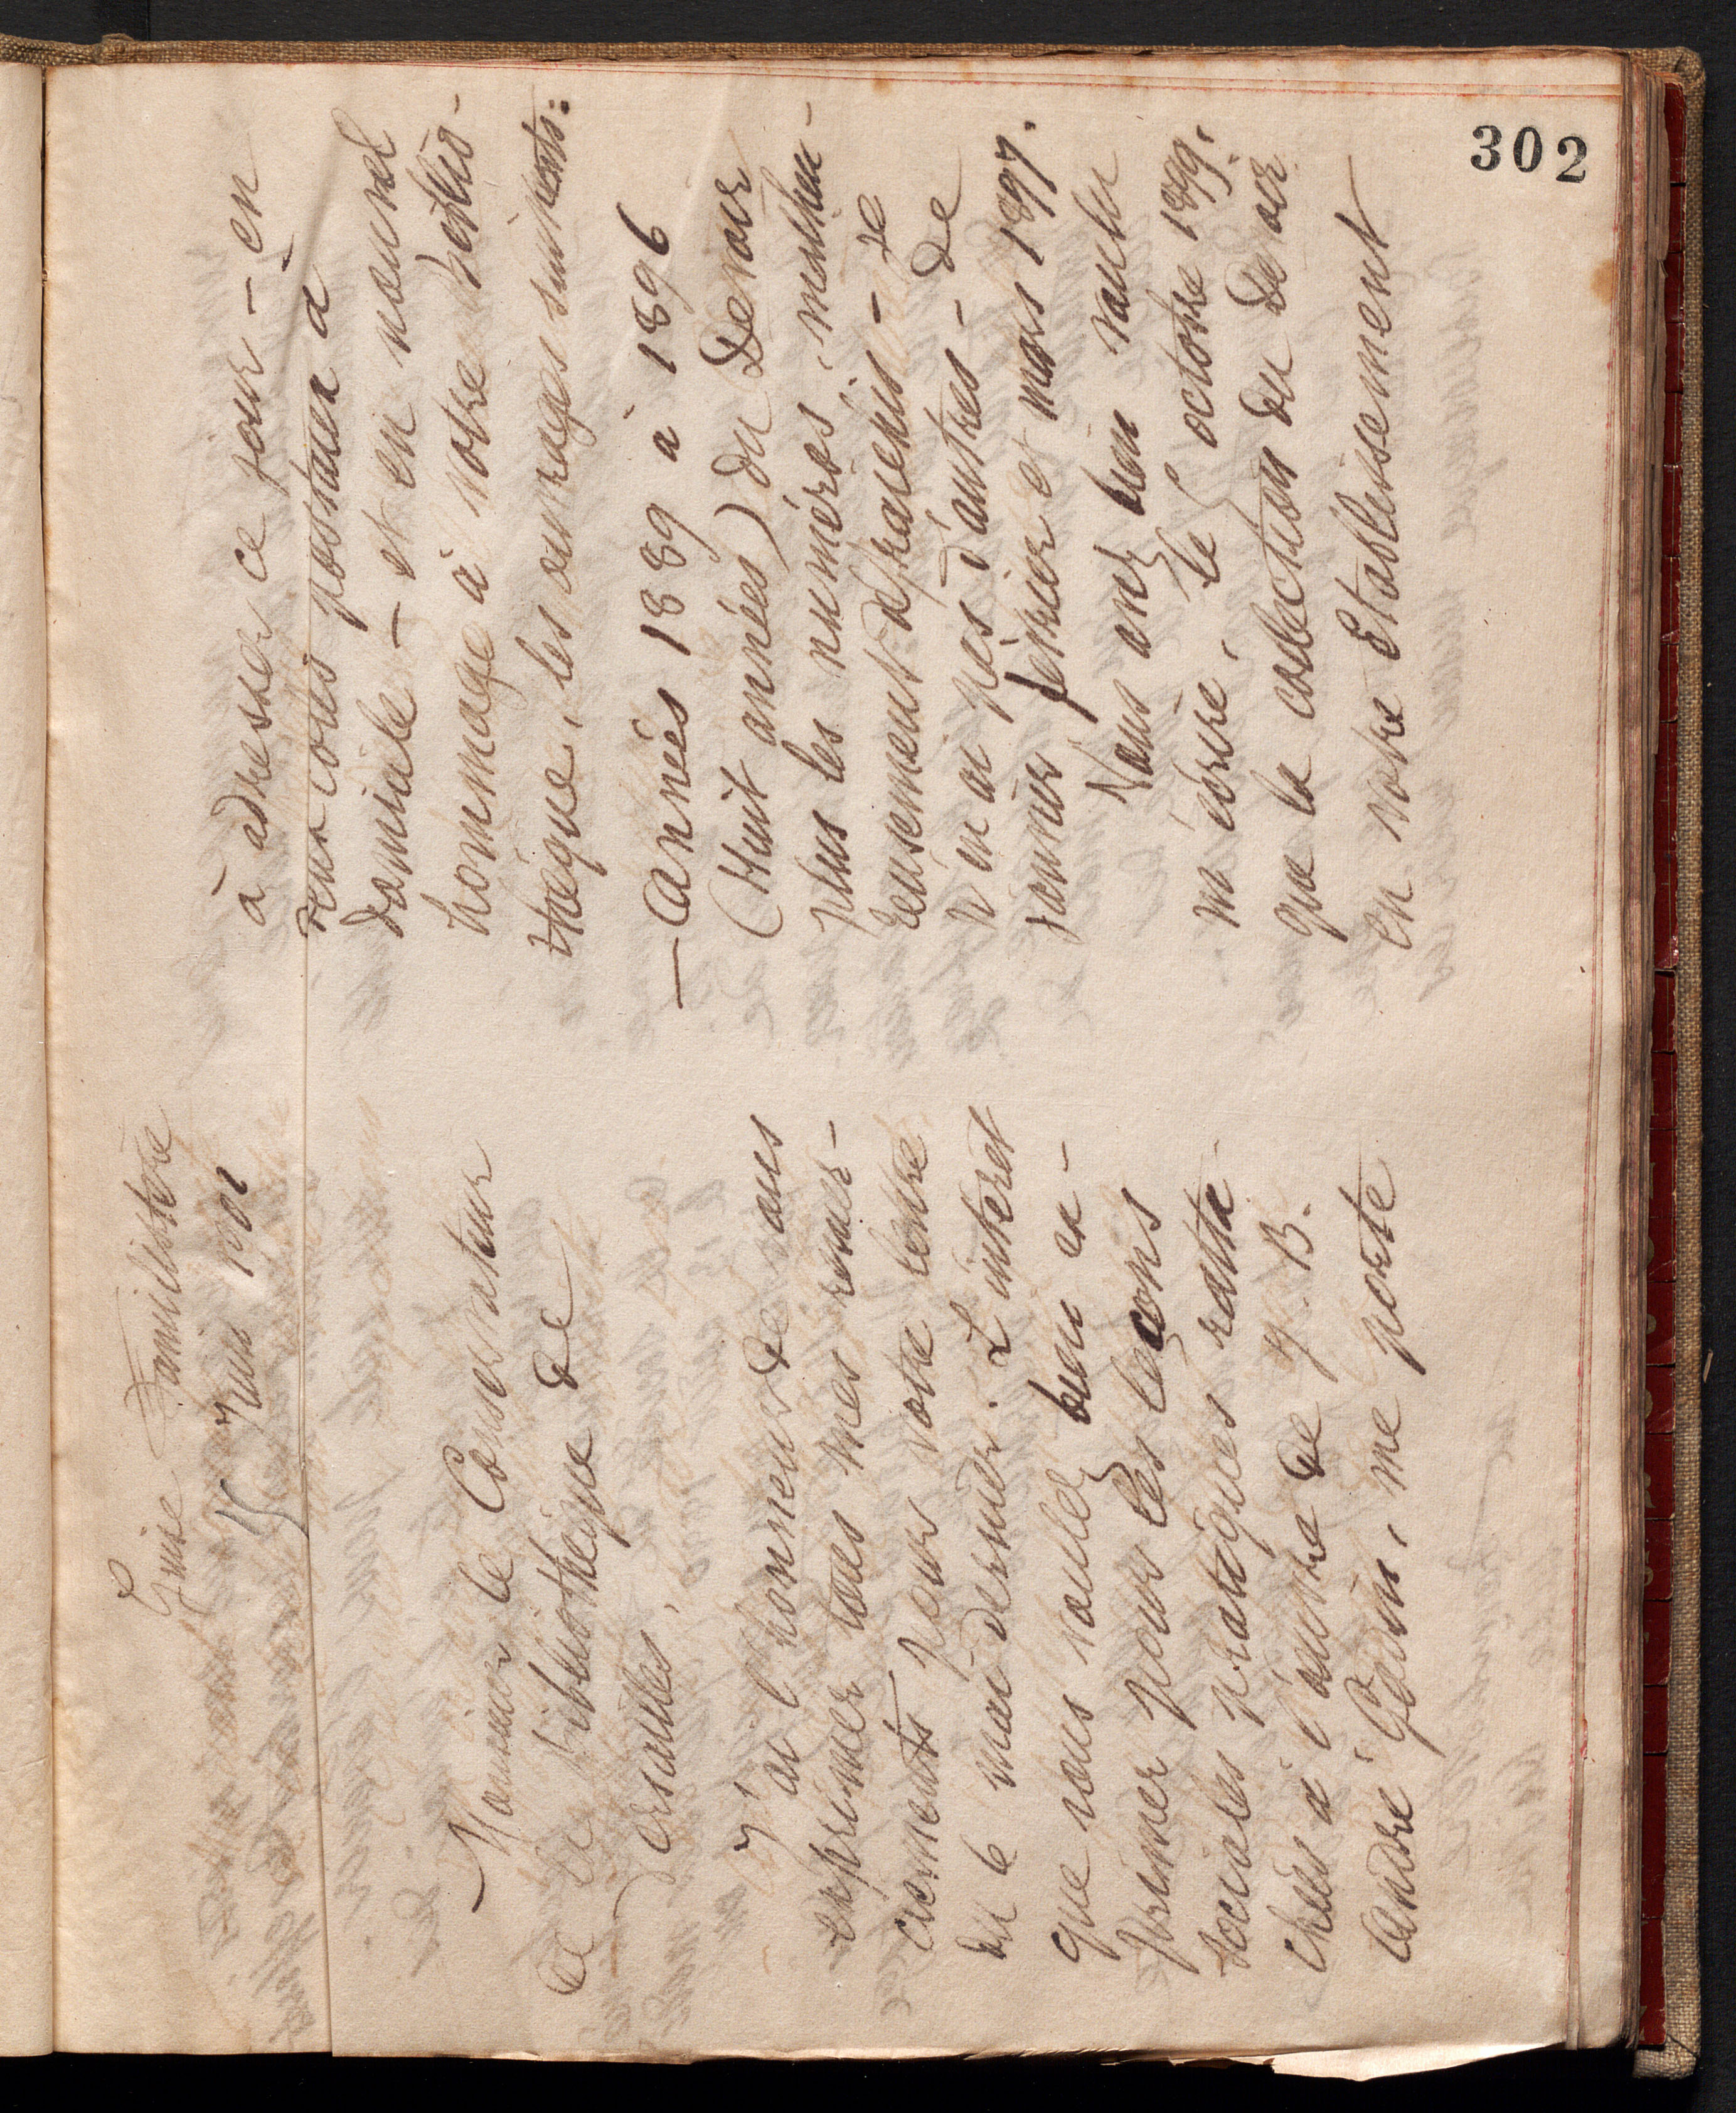 302
Guise Familistère
15 Juin 1901
Monsieur le Conservateur
de la bibliothèque de
Versailles,
J'ai l'honneur de vous
exprimer tous mes remer-
ciements pour votre lettre
du 6 mai dernier. L'intérêt
que vous voulez bien ex-
primer pour les leçons
sociales pratiques ratta-
chées à l'œuvre de J. B.
André Godin, me porte
à adresser ce jour - en
deux colis postaux à
domicile - et en nouvel
hommage à votre biblio-
thèque, les ouvrages suivants:
— Années 1889 à 1896
(Huit années) du Devoir
plus les numéros, malheu-
reusement dépareillés - je
n'en ai pas d'autres - de
janvier février et mars 1897.
Vous avez bien voulu
m'écrire, le octobre 1899,
que la collection du Devoir
en votre Etablissement